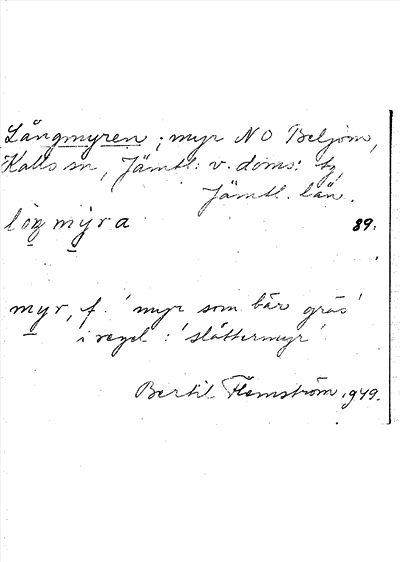 Långmyren ; myr NO Beljom,
Kalls sn, Jämtl: v. doms: tg
Jämtl. län.
lòŋ mýra 89.
myr, f. 'myr som bär gräs'
i regel : 'slåttermyr'.
Bertil Flemström 1949.